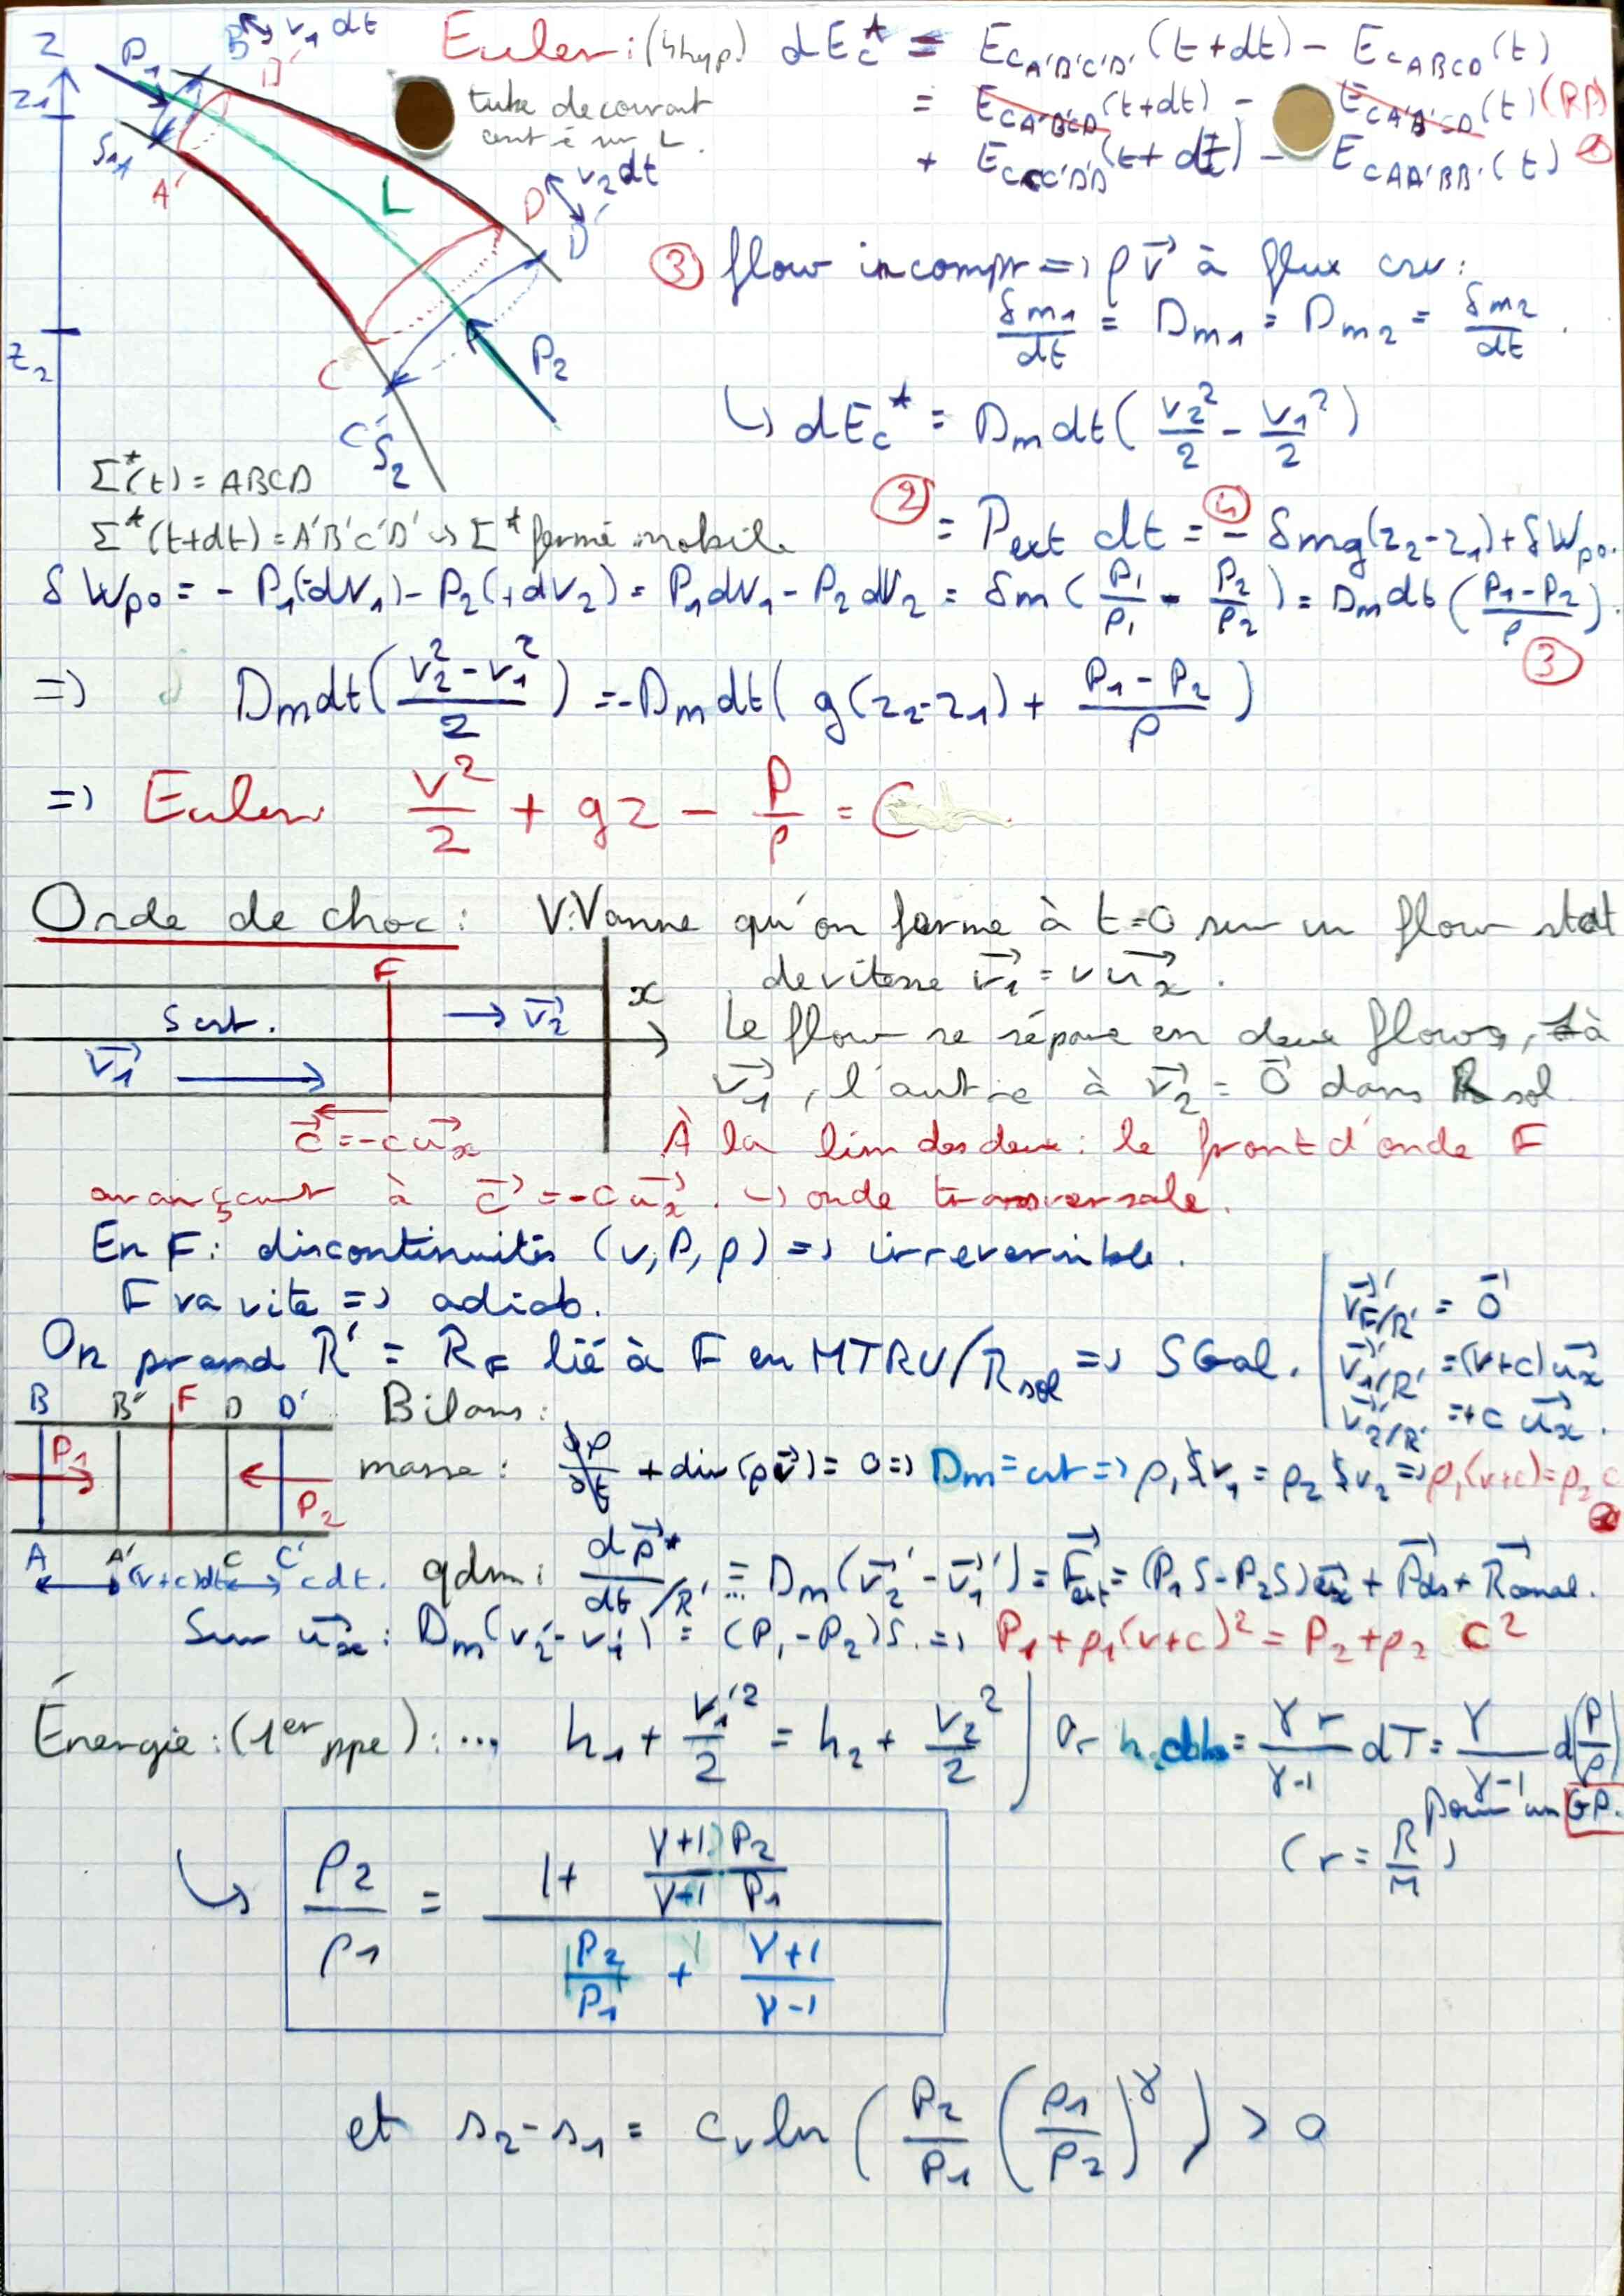 Euler: (4hyp) dEc* = E_cA'B'C'D' (t+dt) - E_cABCD (t)
= E_cA'B'CD (t+dt) - E_cA'B'CD (t) (RP) ①
+ E_cCC'DD' (t+dt) - E_cAA'BB' (t)
tube de courant
centré sur L.
Z
z1
z2
P1
B
v1 dt
B'
S1
A
A'
L
D
v2 dt
D'
C
C'
S2
P2
③ flow incompr => ρ v⃗ à flux csv:
δm1/dt = Dm1 = Dm2 = δm2/dt.
↳ dEc* = Dm dt ( v2²/2 - v1²/2 )
Σ*(t) = ABCD
Σ*(t+dt) = A'B'C'D' ↪ Σ* fermé mobile
② = Pext dt =④ - δmg(z2-z1) + δWpo.
δWpo = - P1(-dV1) - P2(+dV2) = P1dV1 - P2dV2 = δm ( P1/ρ1 - P2/ρ2 ) = Dmdt ( (P1-P2)/ρ ). ③
=> Dmdt ( (v2² - v1²)/2 ) = -Dmdt ( g(z2-z1) + (P1-P2)/ρ )
=> Euler: v²/2 + gz - P/ρ = C
Onde de choc: V:Vanne qu'on ferme à t=0 sur un flow stat
de vitesse v⃗1 = v u⃗x.
F
x
S cst.
v⃗2
v⃗1
c⃗ = -c u⃗x
Le flow se sépare en deux flows, 1 à
v⃗1, l'autre à v⃗2 = 0⃗ dans Rsol.
À la lim des deux: le front d'onde F
avançant à c⃗ = -c u⃗x. ↪ onde transversale.
En F: discontinuités (v, P, ρ) => irreversible.
F va vite => adiab.
On prend R' = RF lié à F en MTRU/Rsol => SGal.
v⃗'F/R' = 0⃗
v⃗1'/R' = (v+c) u⃗x
v⃗2'/R' = +c u⃗x.
B B' F D D'
P1
P2
A A' (v+c)dt C C' cdt.
Bilans:
masse: ∂ρ/∂t + div(ρv⃗) = 0 => Dm = cst => ρ1 S v1 = ρ2 S v2 => ρ1(v+c) = ρ2 c
qdm: dp⃗*/dt /R' = ... = Dm(v⃗2' - v⃗1') = F⃗ext = (P1S - P2S) u⃗x + P⃗ds + R⃗canal.
Sur u⃗x: Dm(v2' - v1') = (P1 - P2)S. => P1 + ρ1(v+c)² = P2 + ρ2 c²
Énergie: (1er ppe): ... h1 + v1'²/2 = h2 + v2²/2 ) Or dh = γr/(γ-1) dT = γ/(γ-1) d(P/ρ)
pour un GP.
(r = R/M)
↳ ρ2/ρ1 = ( 1 + (γ+1)/(γ+1) P2/P1 ) / ( P2/P1 + (γ+1)/(γ-1) )
et s2 - s1 = cv ln ( P2/P1 ( ρ1/ρ2 )^γ ) > 0